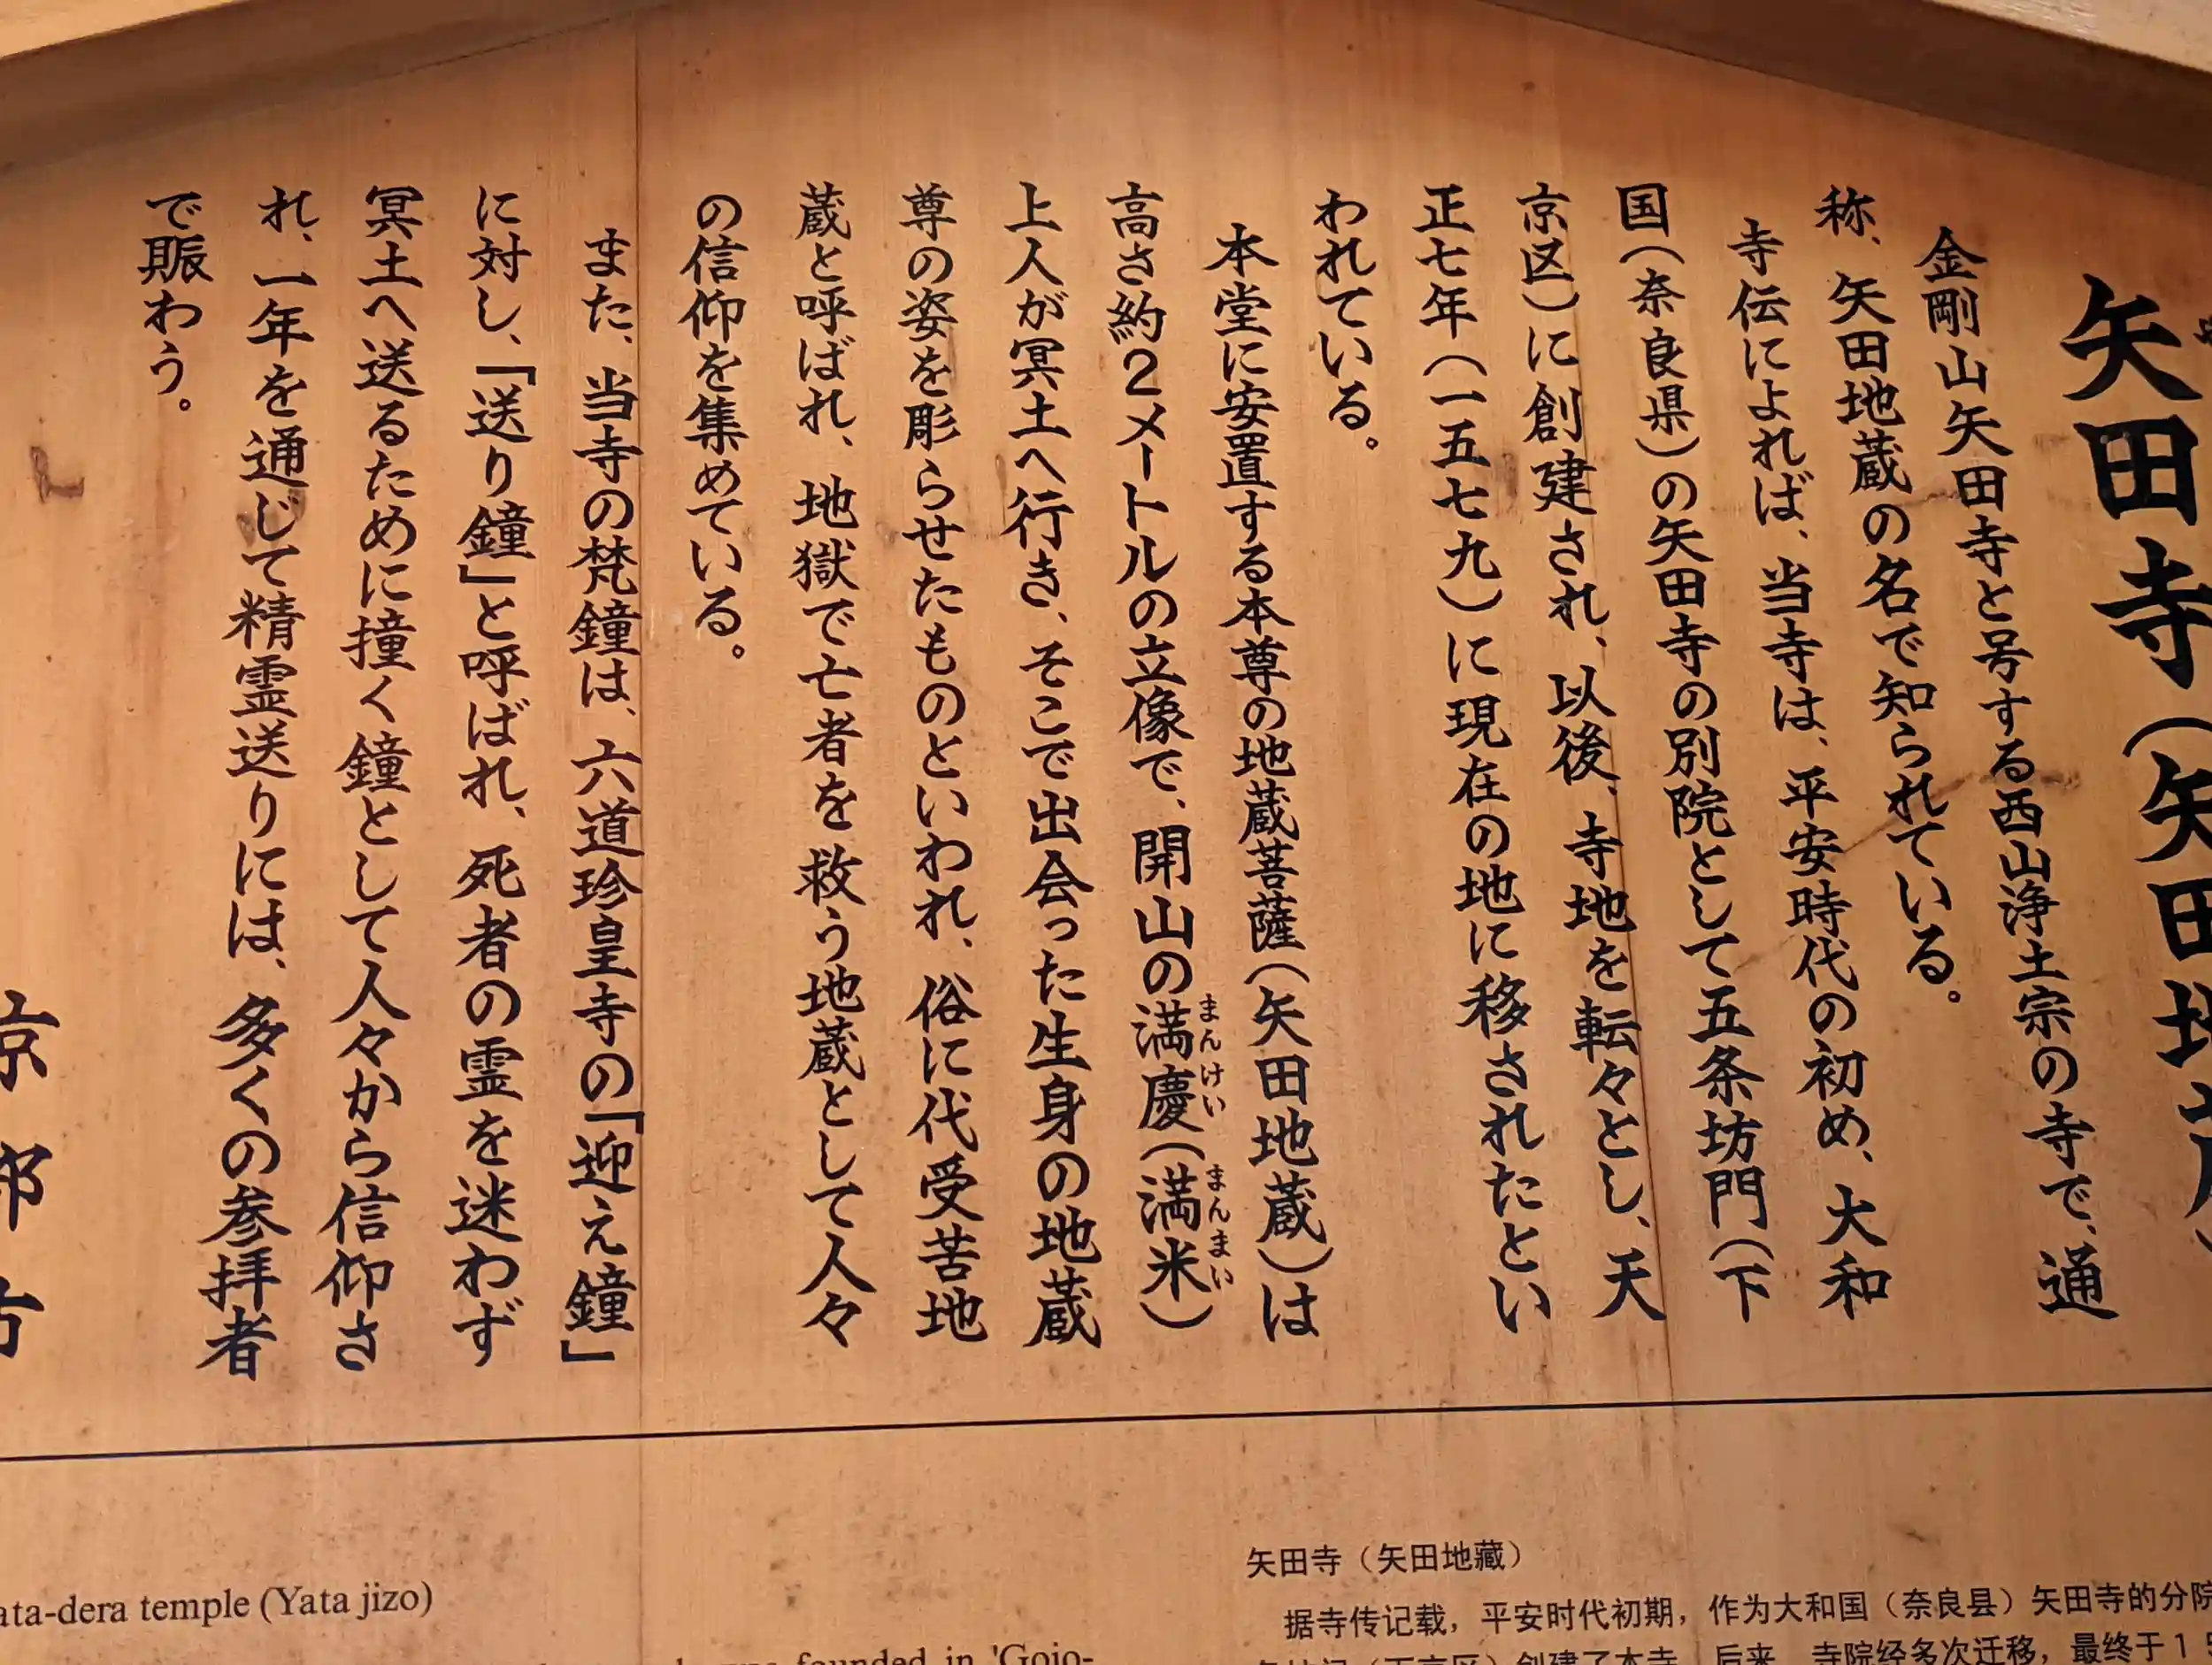 矢田寺（矢田地蔵）
金剛山矢田寺と号する西山浄土宗の寺で、通
称、矢田地蔵の名で知られている。
寺伝によれば、当寺は、平安時代の初め、大和
国（奈良県）の矢田寺の別院として五条坊門（下
京区）に創建され、以後、寺地を転々とし、天
正七年（一五七九）に現在の地に移されたとい
われている。
本堂に安置する本尊の地蔵菩薩（矢田地蔵）は
高さ約2メートルの立像で、開山の満慶（満米）
まんけい まんまい
上人が冥土へ行き、そこで出会った生身の地蔵
尊の姿を彫らせたものといわれ、俗に代受苦地
蔵と呼ばれ、地獄で亡者を救う地蔵として人々
の信仰を集めている。
また、当寺の梵鐘は、六道珍皇寺の「迎え鐘」
に対し、「送り鐘」と呼ばれ、死者の霊を迷わず
冥土へ送るために撞く鐘として人々から信仰さ
れ、一年を通じて精霊送りには、多くの参拝者
で賑わう。
京都市
ata-dera temple (Yata jizo)
founded in 'Gojo-
矢田寺（矢田地藏）
据寺传记载，平安时代初期，作为大和国（奈良县）矢田寺的分院
创建了本寺。后来，寺院经多次迁移，最终于1